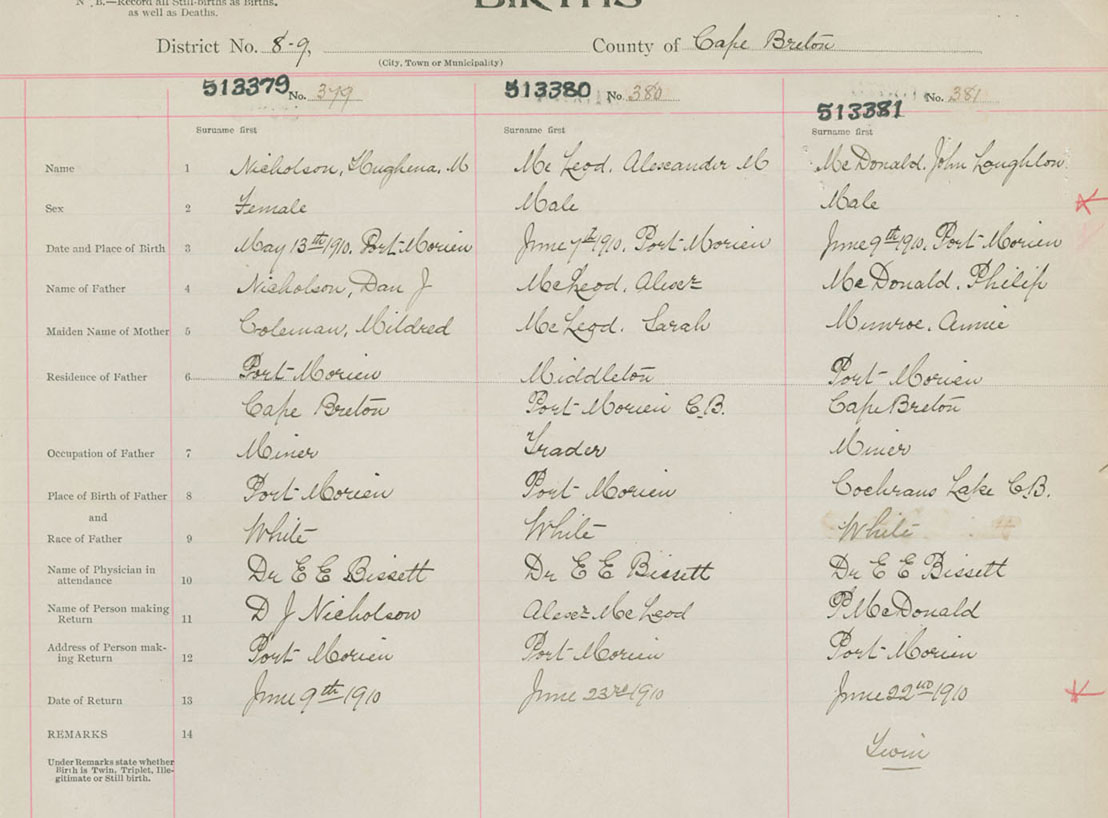 N.B.—Record all Still-births as Births,
as well as Deaths.
BIRTHS
District No. 8-9, County of Cape Breton
(City, Town or Municipality)
513379 No. 379 513380 No. 380 513381 No. 381
Surname first Surname first Surname first
Name 1 Nicholson, Hughena, M Mc Leod, Alexcander M McDonald, John Loughton
Sex 2 Female Male Male
Date and Place of Birth 3 May 13th 1910. Port-Morien June 7th 1910. Port-Morien June 9th 1910. Port-Morien
Name of Father 4 Nicholson, Dan J McLeod, Alexz McDonald, Philip
Maiden Name of Mother 5 Coleman, Mildred McLeod, Sarah Munroe, Annie
Residence of Father 6 Port-Morien Middleton Port-Morien
Cape Breton Port-Morien C.B. Cape Breton
Occupation of Father 7 Miner Trader Miner
Place of Birth of Father 8 Port-Morien Port-Morien Cochrans Lake C.B.
and
Race of Father 9 White White White
Name of Physician in
attendance 10 Dr E E Bissett Dr E E Bissett Dr E E Bissett
Name of Person making
Return 11 D J Nicholson Alexz McLeod P McDonald
Address of Person mak-
ing Return 12 Port-Morien Port-Morien Port-Morien
Date of Return 13 June 9th 1910 June 23rd 1910 June 22nd 1910
REMARKS 14 Twin
Under Remarks state whether
Birth is Twin, Triplet, Ille-
gitimate or Still birth.